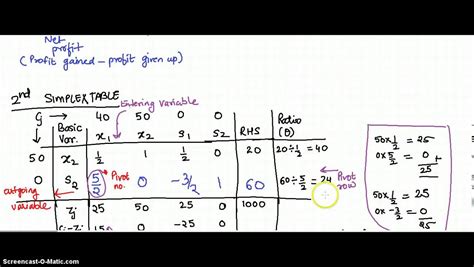 Net
profit
(Profit gained – profit given up)
2nd SIMPLEX TABLE
Entering variable
Cj → 40 50 0 0
Basic Var. x1 x2 S1 S2 RHS Ratio (θ)
50 x2 1/2 1 1/2 0 20 20÷1/2 = 40
0 S2 5/2 Pivot no. 0 -3/2 1 60 60÷5/2 = 24 Pivot row
outgoing variable
Zj 25 50 25 0 1000
Cj-Zj 15 0 -25 0
50x1/2 = 25
0x5/2 = 0 +
25
50x1/2 = 25
0x-3/2 = 0
25
Screencast-O-Matic.com